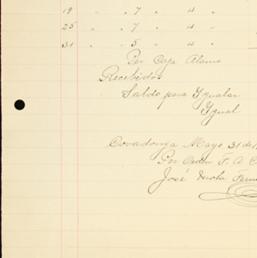 19 " " 7 " 4 "
25 " " 7 " 4 "
31 " " 5 " 4 "
Por Caja Alamo
Recibidos
Saldo para Ygualar
Ygual
Covadonga Mayo 31 de 1
Por Orden F. A. C
José